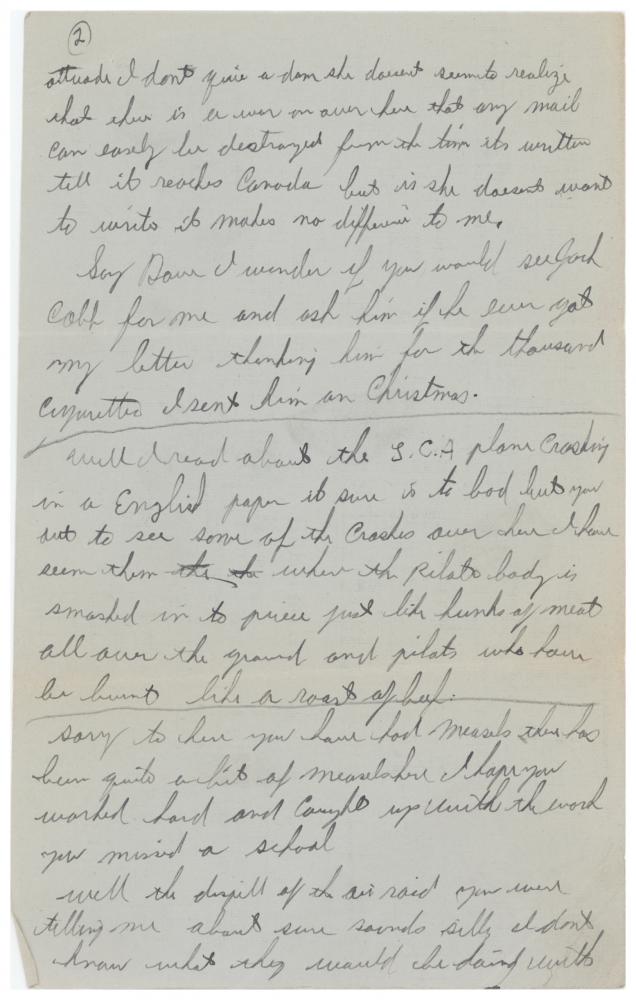 2
attuade I dont give a dam she daesent seem to realize
that there is a war on over here that any mail
can easly be destroyed from the tim its written
till it reaches Canada but is she daesent want
to write it makes no differene to me.
Say Dave I wonder if you would see Jack
Cobb for me and ask him if he ever got
my letter thanking him for the thousand
Cigarettes I sent him an Christmas.
well I read about the T.C.A plane Crashing
in a English paper it sure is to bad but you
aut to see some of the Crashes over here I have
seem them the the where the Pilots body is
smashed in to piece just like hunks of meat
all over the ground and pilots who have
be burnt like a roast of beef.
sorry to here you have had measels there has
been quite a bit of measels here I hope you
worked hard and caught up with the work
you missed a school
well the of the air raid you were
telling me about sure sounds silly I dont
know what they would be doing with